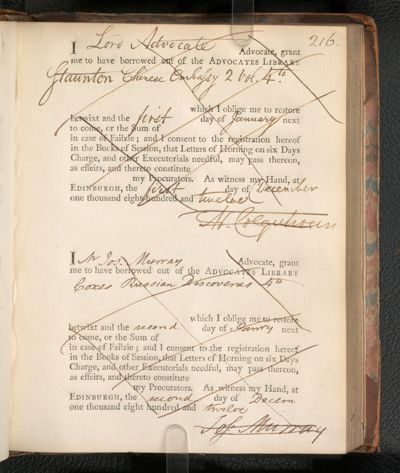 216.
I Lord Advocate Advocate, grant
me to have borrowed out of the ADVOCATES LIBRARY
Staunton Chinese Embassy 2 Vol. 4to
which I oblige me to restore
betwixt and the first day of January next
to come, or the Sum of
in case of Failzie; and I consent to the registration hereof
in the Books of Session, that Letters of Horning on six Days
Charge, and other Executorials needful, may pass thereon,
as effeirs, and thereto constitute
my Procurators. As witness my Hand, at
EDINBURGH, the first day of December
one thousand eight hundred and twelve
A. Colquhoun
I Mr Jos. Murray Advocate, grant
me to have borrowed out of the ADVOCATES LIBRARY
Coxes Russian Discoveries 4to
which I oblige me to restore
betwixt and the second day of Janry next
to come, or the Sum of
in case of Failzie; and I consent to the registration hereof
in the Books of Session, that Letters of Horning on six Days
Charge, and other Executorials needful, may pass thereon,
as effeirs, and thereto constitute
my Procurators. As witness my Hand, at
EDINBURGH, the second day of Decem
one thousand eight hundred and twelve
Jos. Murray